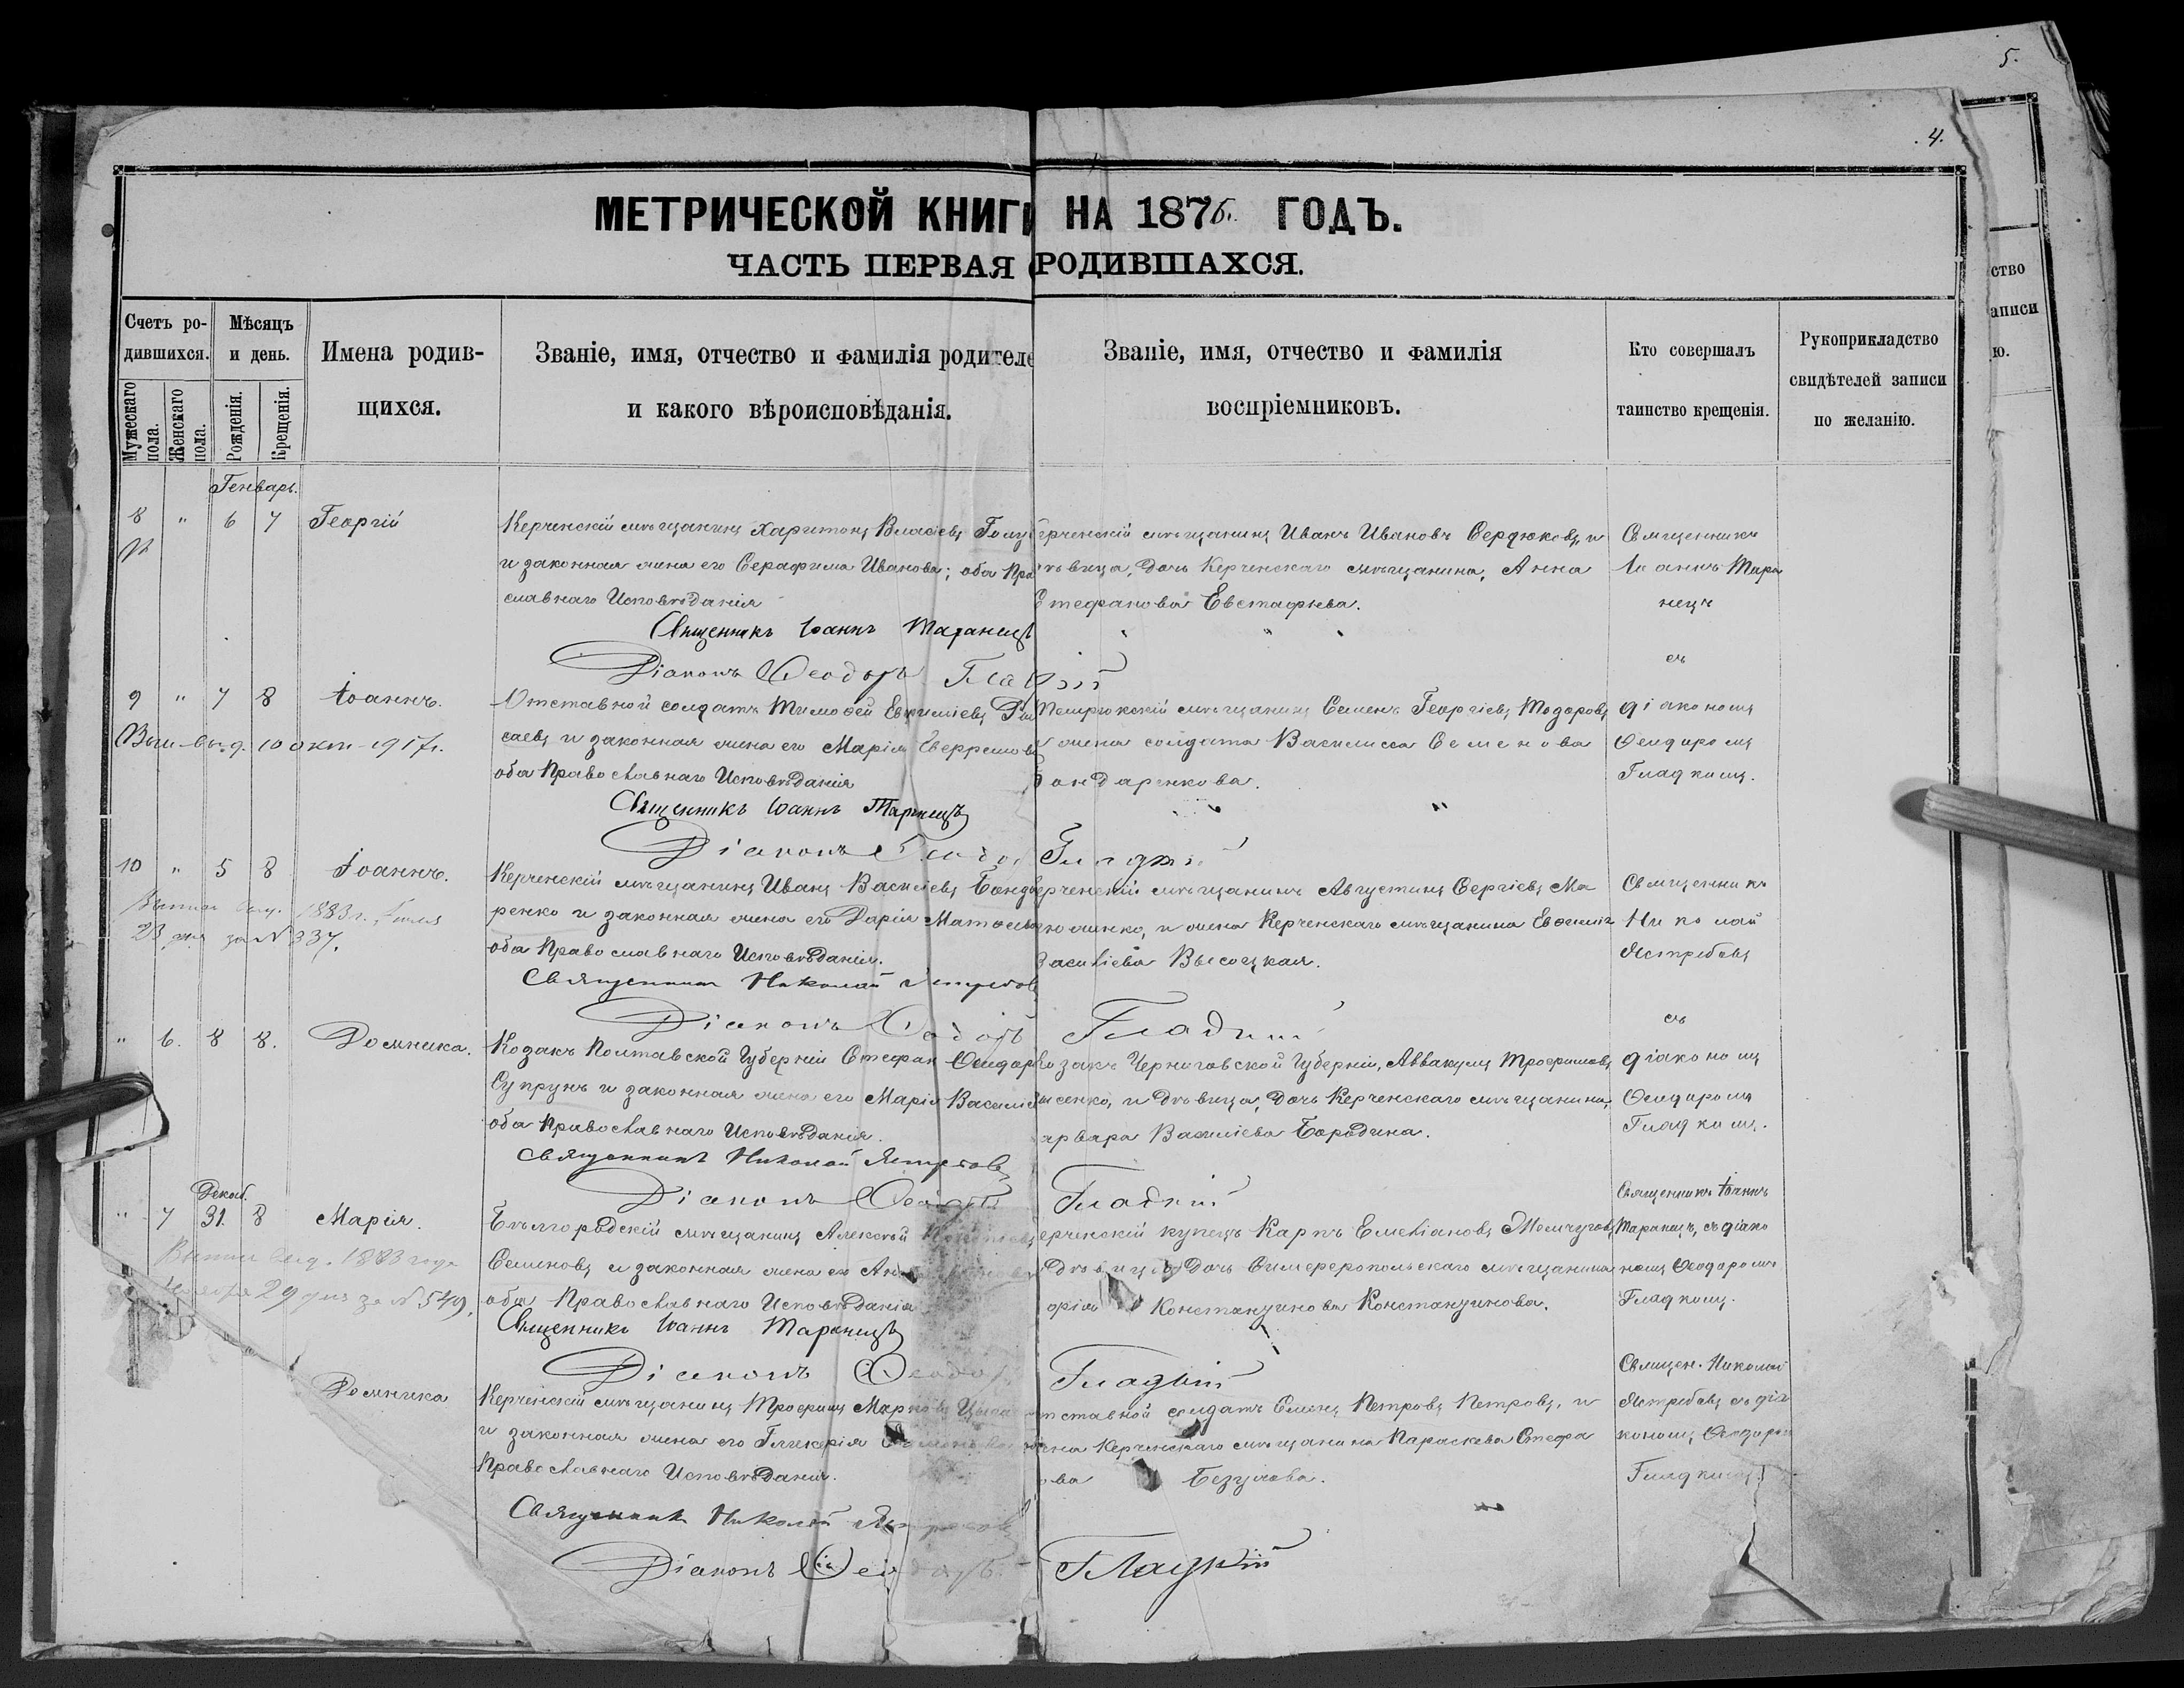 5.
4.
МЕТРИЧЕСКОЙ КНИГИ НА 1876. ГОДЪ.
ЧАСТЬ ПЕРВАЯ О РОДИВШАХСЯ.
ство
аписи
ю.
Счетъ ро-
дившихся.
Мужескаго
пола.
Женскаго
пола.
Мѣсяцъ
и день.
Рожденія.
Крещенія.
Имена родив-
щихся.
Званіе, имя, отчество и фамилія родителе
и какого вѣроисповѣданія.
Званіе, имя, отчество и фамилія
воспріемниковъ.
Кто совершалъ
таинство крещенія.
Рукоприкладство
свидѣтелей записи
по желанію.
Генварь.
8 " 6 7 Георгій
Керченскій мѣщанинъ Харитонъ Власіевъ
и законная жена его Серафима Иванова; оба Пра
славнаго Исповѣданія
Священникъ Іоаннъ Таранецъ
Діаконъ Ѳеодоръ Гладкій
ерченскій мѣщанинъ Иванъ Ивановъ Сердюковъ, и
ѣвица, дочь Керченскаго мѣщанина, Анна
Стефанова Евстафьева.
Священникъ
Іоаннъ Тара
нецъ
съ
діакономъ
Ѳеодоромъ
Гладкимъ.
9 " 7 8 Іоаннъ.
10 окт. 1917 г.
Отставной солдатъ Тимоѳей Евфиміевъ
саевъ и законная жена его Марія
оба Православнаго Исповѣданія
Священникъ Іоаннъ Таранецъ
Діаконъ Ѳеодоръ Гладкій
Темрюкскій мѣщанинъ Семенъ Георгіевъ Тодоровъ
и жена солдата Василиса Семенова
Бондаренкова.
10 " 5 8 Іоаннъ.
1883 г. Іюля
23 дня за № 337.
Керченскій мѣщанинъ Иванъ Василіевъ Бонда
ренко и законная жена его Дарія
оба Православнаго Исповѣданія.
Священникъ Николай Ястребовъ
Діаконъ Ѳеодоръ Гладкій
ерченскій мѣщанинъ Августинъ Сергіевъ
и жена Керченскаго мѣщанина Евфимія
Василіева Высоцкая.
Священникъ
Николай
Ястребовъ
съ
діакономъ
Ѳеодоромъ
Гладкимъ.
" 6. 8 8. Домника.
Козакъ Полтавской Губерніи Стефан Ѳеодор
Супрунъ и законная жена его Марія Василіе
оба Православнаго Исповѣданія.
Священникъ Николай Ястребовъ
Діаконъ Ѳеодоръ Гладкій
озакъ Черниговской Губерніи, Аввакумъ Трофимовъ
ысенко, и дѣвица, дочь Керченскаго мѣщанина,
арвара Василіева Бородина.
Декаб.
" 7 31. 8 Марія.
1883 года
29 дня за № 549.
Бѣлгородскій мѣщанинъ Алексѣй
Семеновъ и законная жена его
оба Православнаго Исповѣданія
Священникъ Іоаннъ Таранецъ
Діаконъ Ѳеодоръ Гладкій
ерченскій купецъ Карпъ Емеліановъ Жемчуговъ
дѣвица дочь Симферопольскаго мѣщанина
арія Константинова Константинова.
Священникъ Іоаннъ
Таранецъ, съ діако
номъ Ѳеодоромъ
Гладкимъ.
Домника
Керченскій мѣщанинъ Трофимъ Марковъ
и законная жена его Гликерія
Православнаго Исповѣданія.
Священникъ Николай Ястребовъ
Діаконъ Ѳеодоръ Гладкій
тставной солдатъ Семенъ Петровъ Петровъ, и
жена Керченскаго мѣщанина Параскева Стефа
ова Безуглова.
Священ. Николай
Ястребовъ съ діа
кономъ Ѳеодором
Гладкимъ.